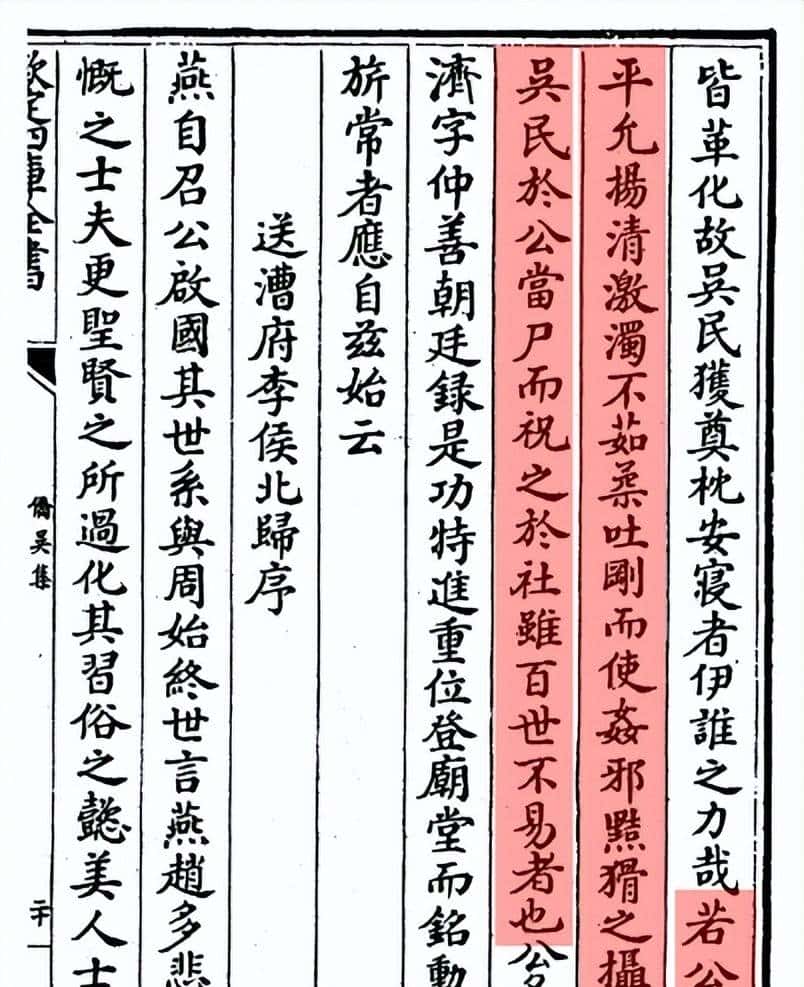 皆革化故吳民獲奠枕安寢者伊誰之力哉若公
平允揚清激濁不茹柔吐剛而使姦邪黠猾之攝
吳民於公當尸而祝之於社雖百世不易者也公
濟字仲善朝廷錄是功特進重位登廟堂而銘勳
旂常者應自茲始云
送漕府李侯北歸序
燕自召公啟國其世系與周始終世言燕趙多悲
慨之士夫更聖賢之所過化其習俗之懿美人士
欽定四庫全書
僑吳集
二十一